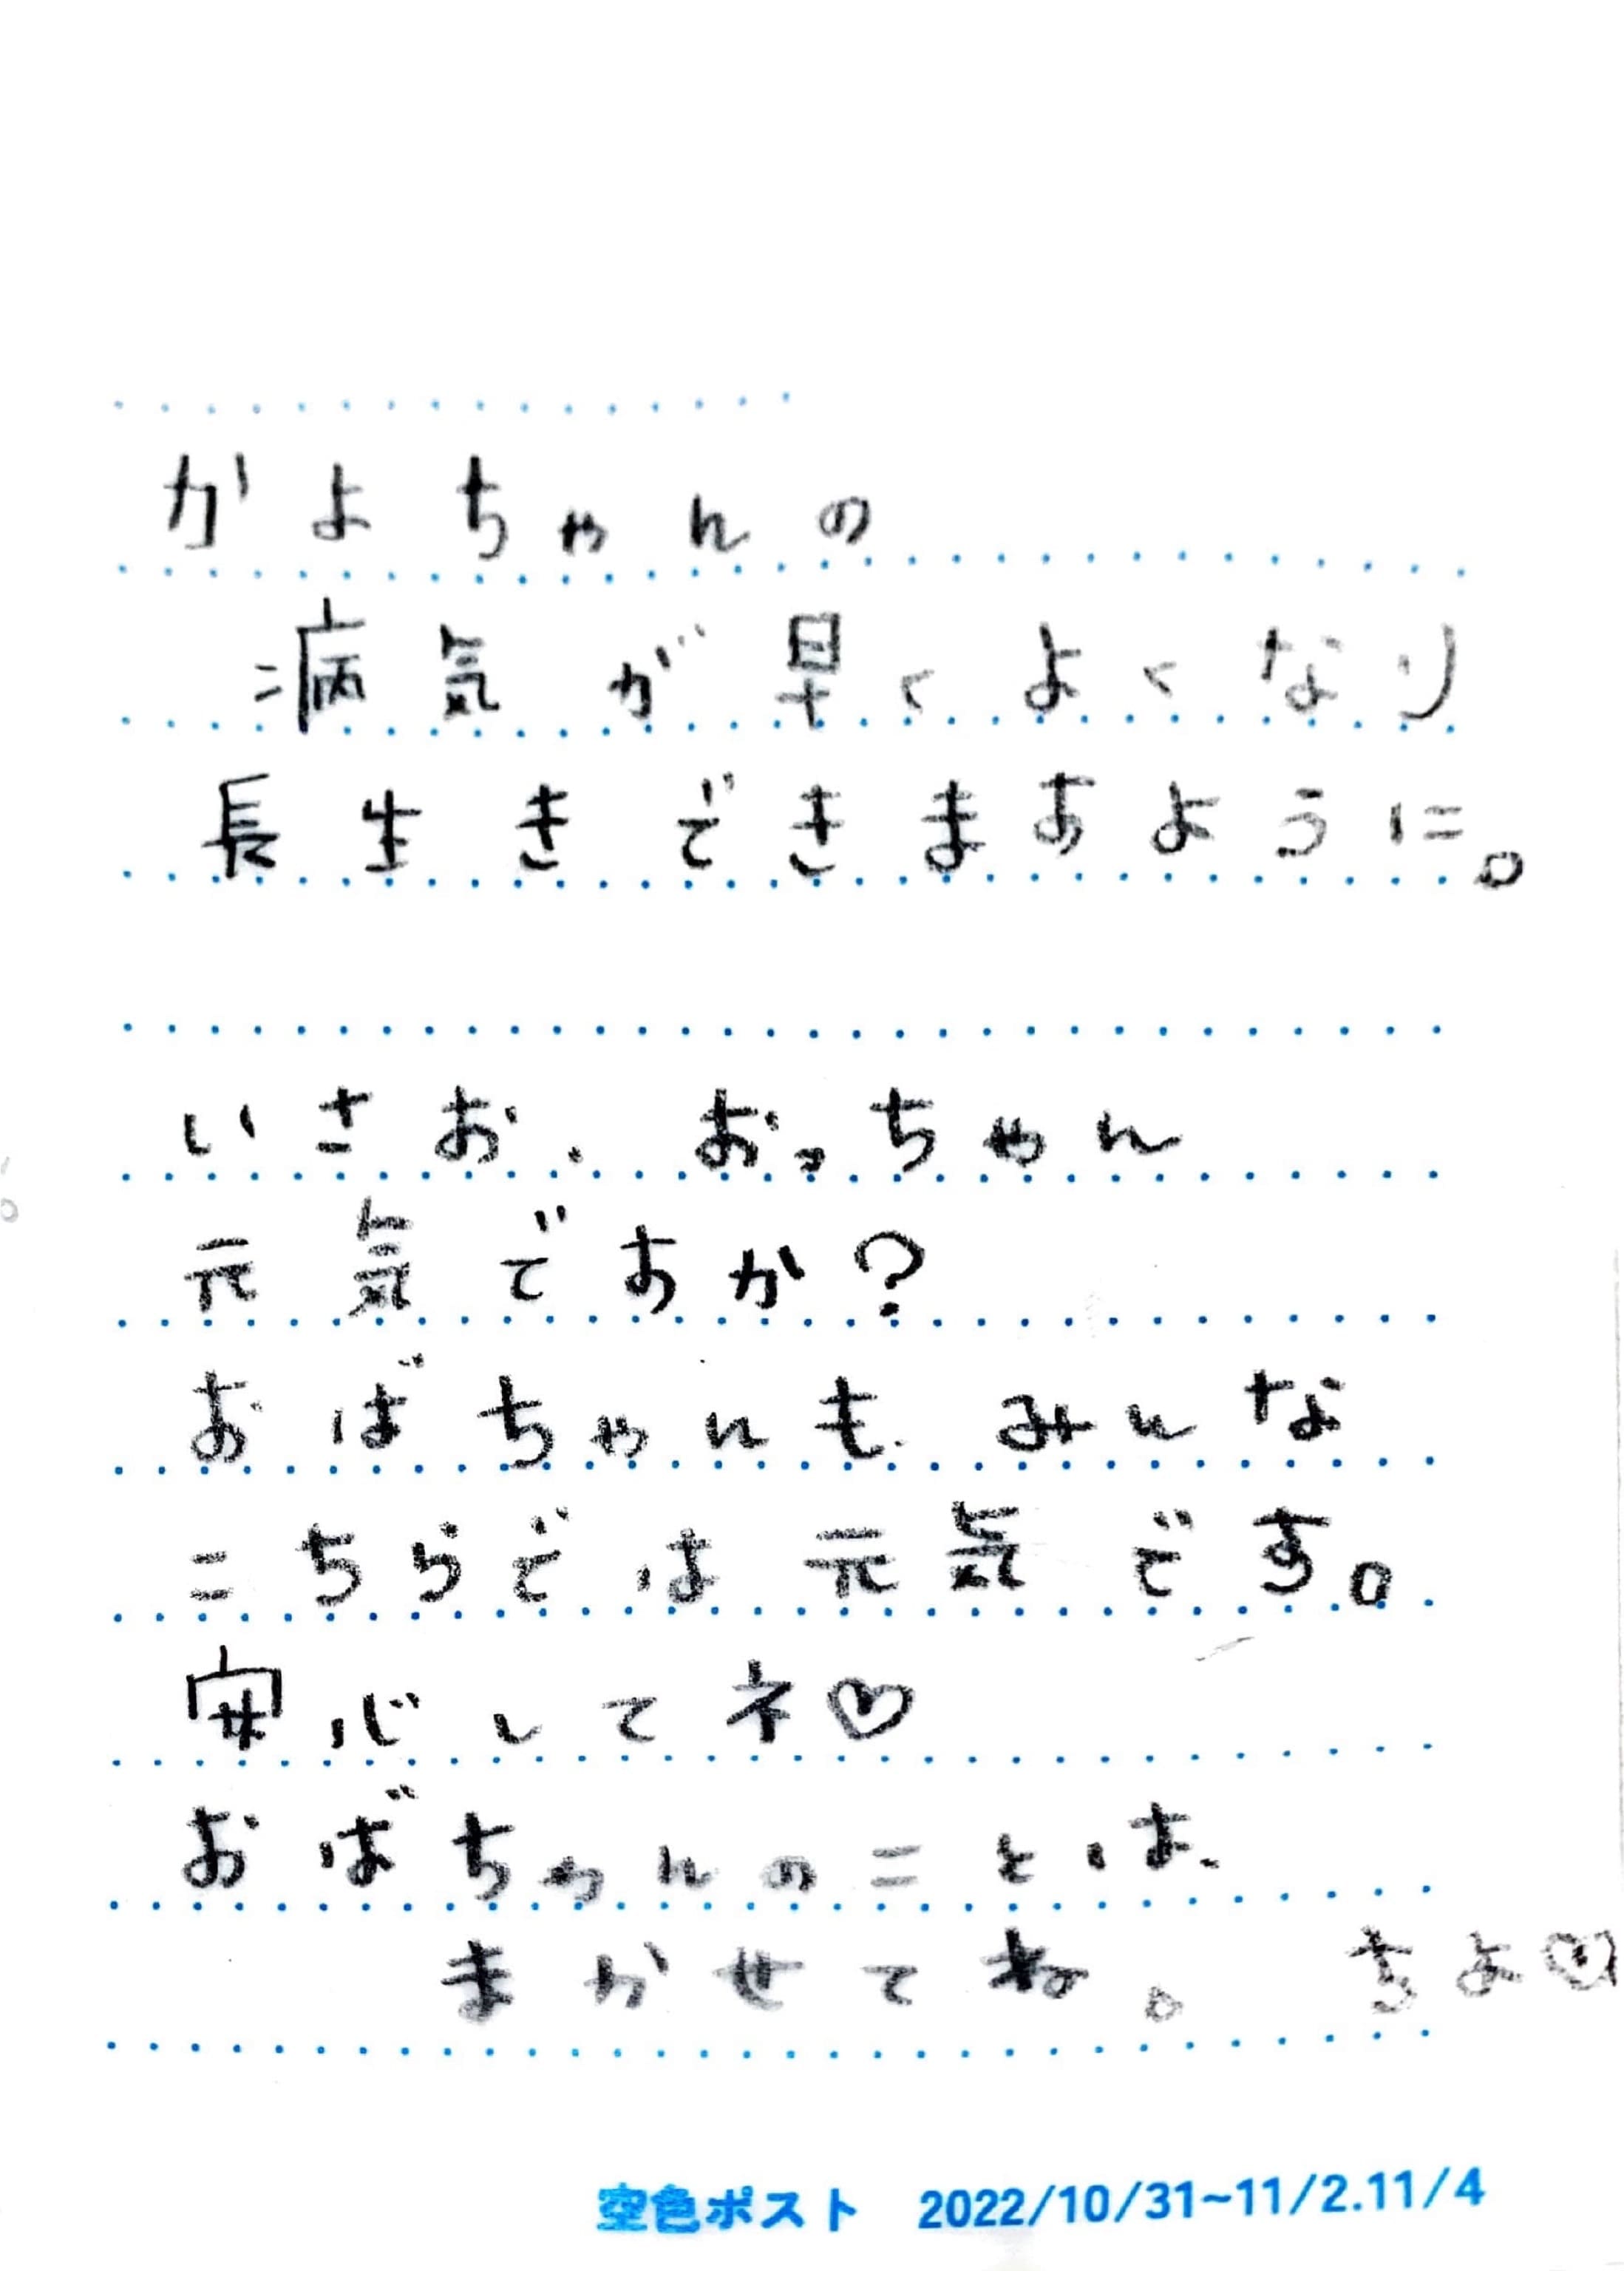 かよちゃんの
病気が早くよくなり
長生きできますように。
いさお、おっちゃん
元気ですか?
おばちゃんも、みんな
こちらでは元気です。
安心してネ♡
おばちゃんのことは、
まかせてね。 ちよ♡
空色ポスト 2022/10/31~11/2.11/4